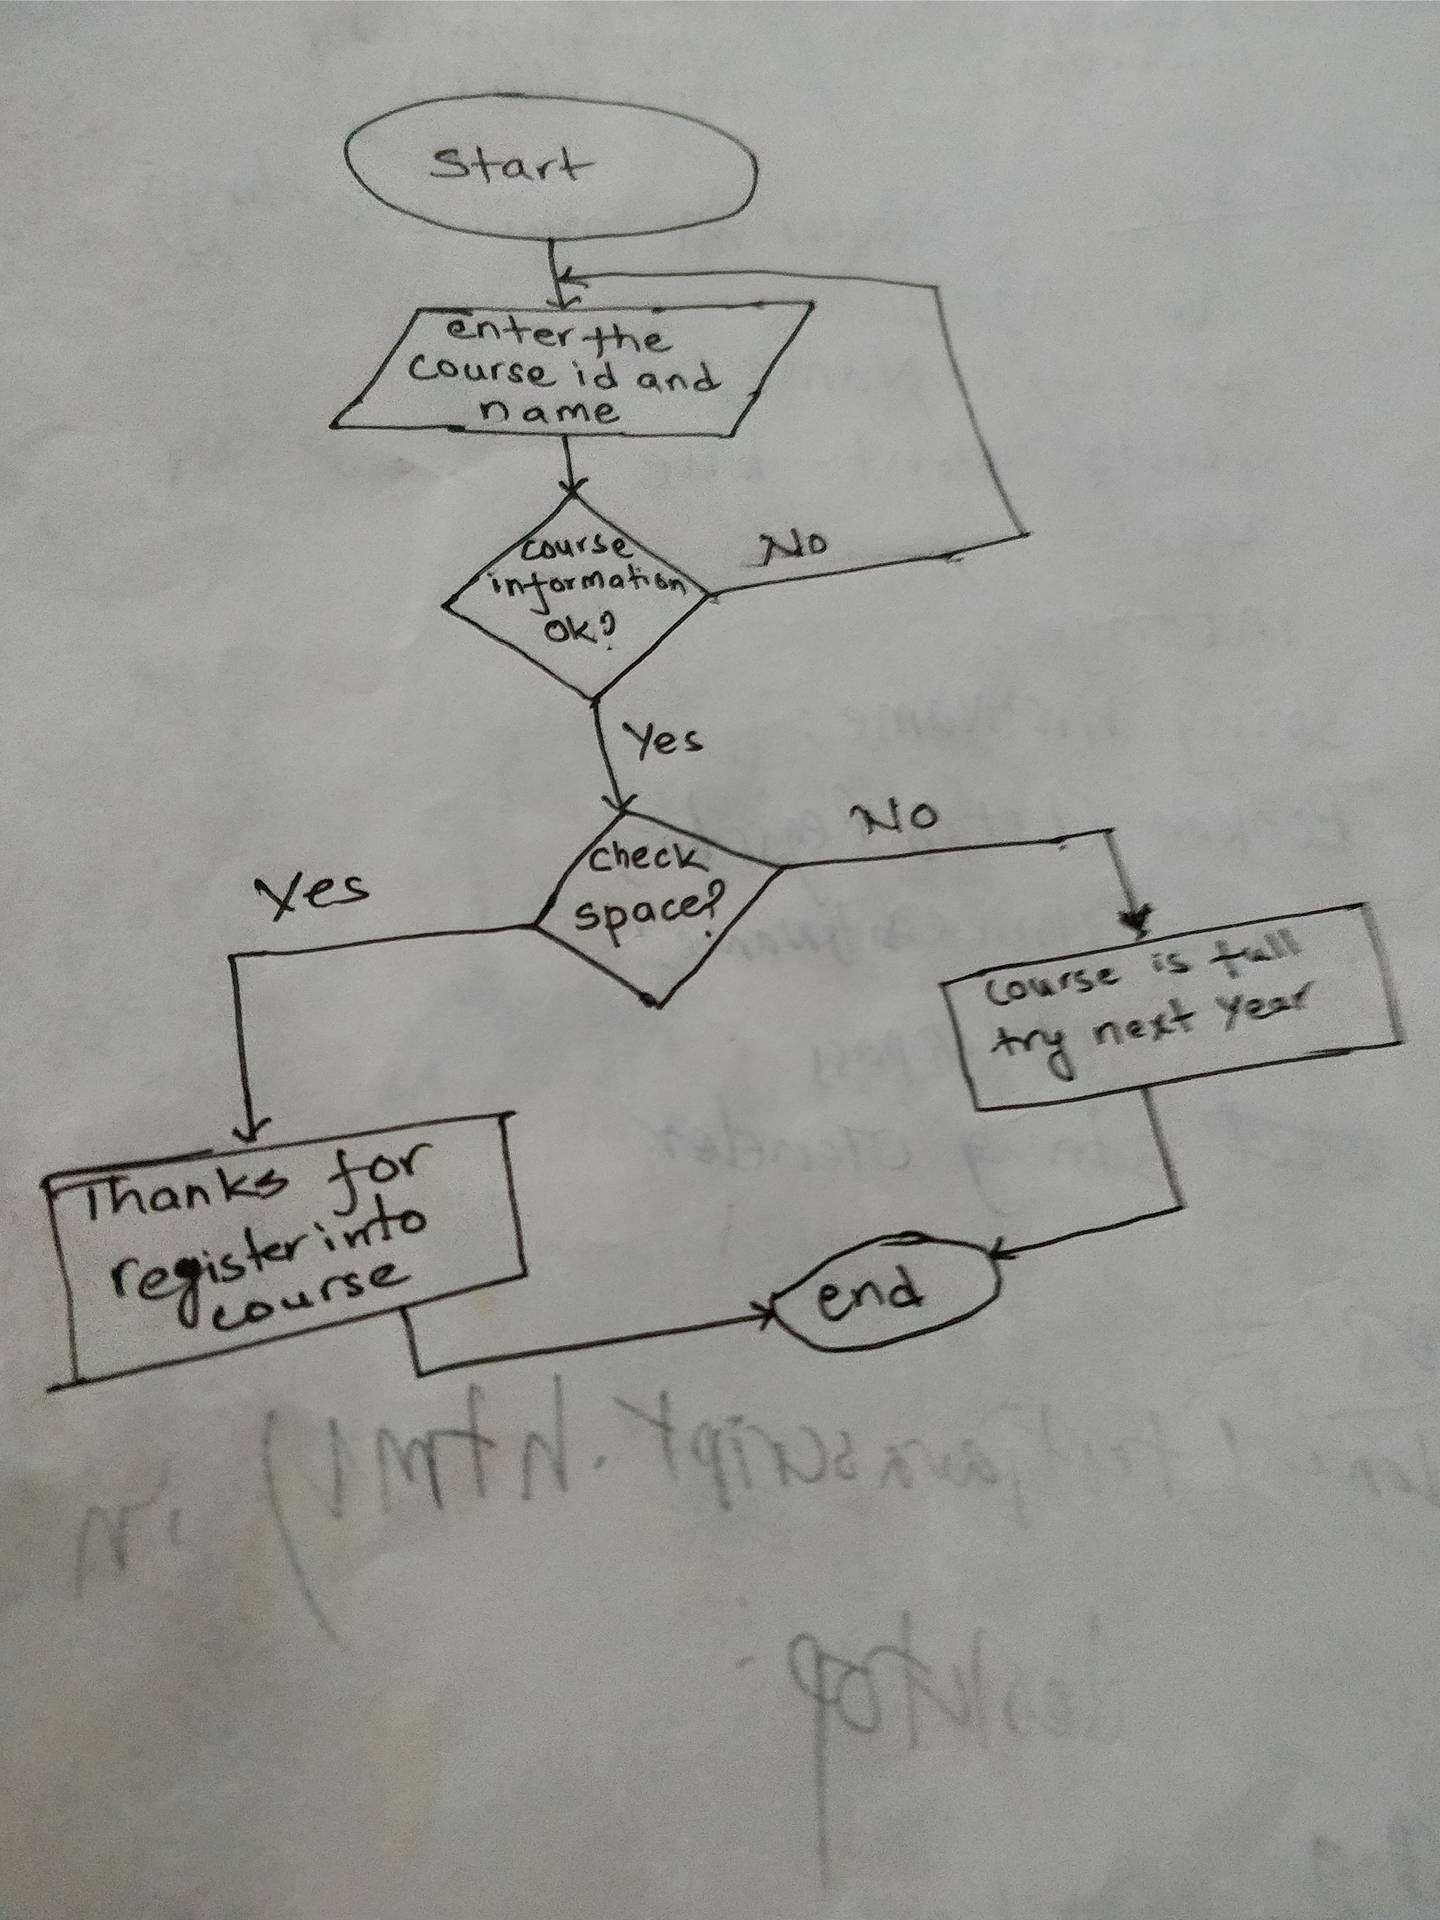 Start
enter the
course id and
name
course
information
ok?
No
Yes
check
space?
No
Yes
course is full
try next year
Thanks for
register into
course
end